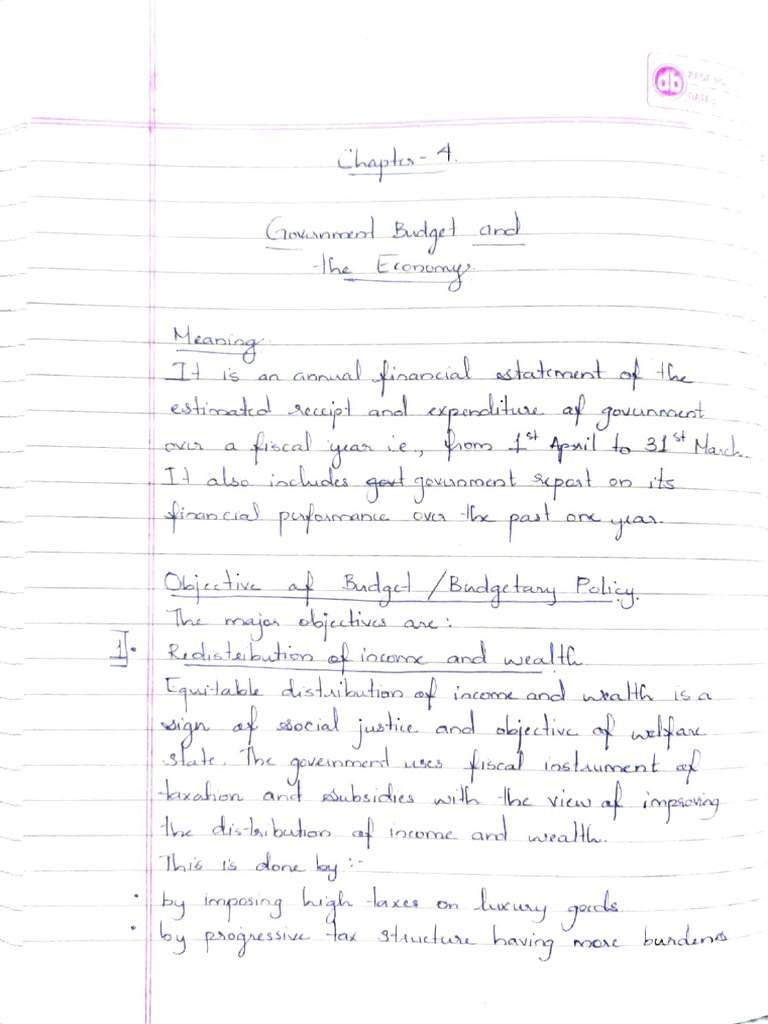 db PAGE NO.
DATE:
Chapter - 4.
Government Budget and
the Economy.
Meaning.
It is an annual financial statement of the
estimated receipt and expenditure of government
over a fiscal year ie., from 1st April to 31st March.
It also includes govt government report on its
financial performance over the past one year.
Objective of Budget / Budgetary Policy.
The major objectives are:
1. Redistribution of income and wealth.
Equitable distribution of income and wealth is a
sign of social justice and objective of welfare
state. The government uses fiscal instrument of
taxation and subsidies with the view of improving
the distribution of income and wealth.
This is done by :-
• by imposing high taxes on luxury goods.
• by progressive tax structure having more burdens